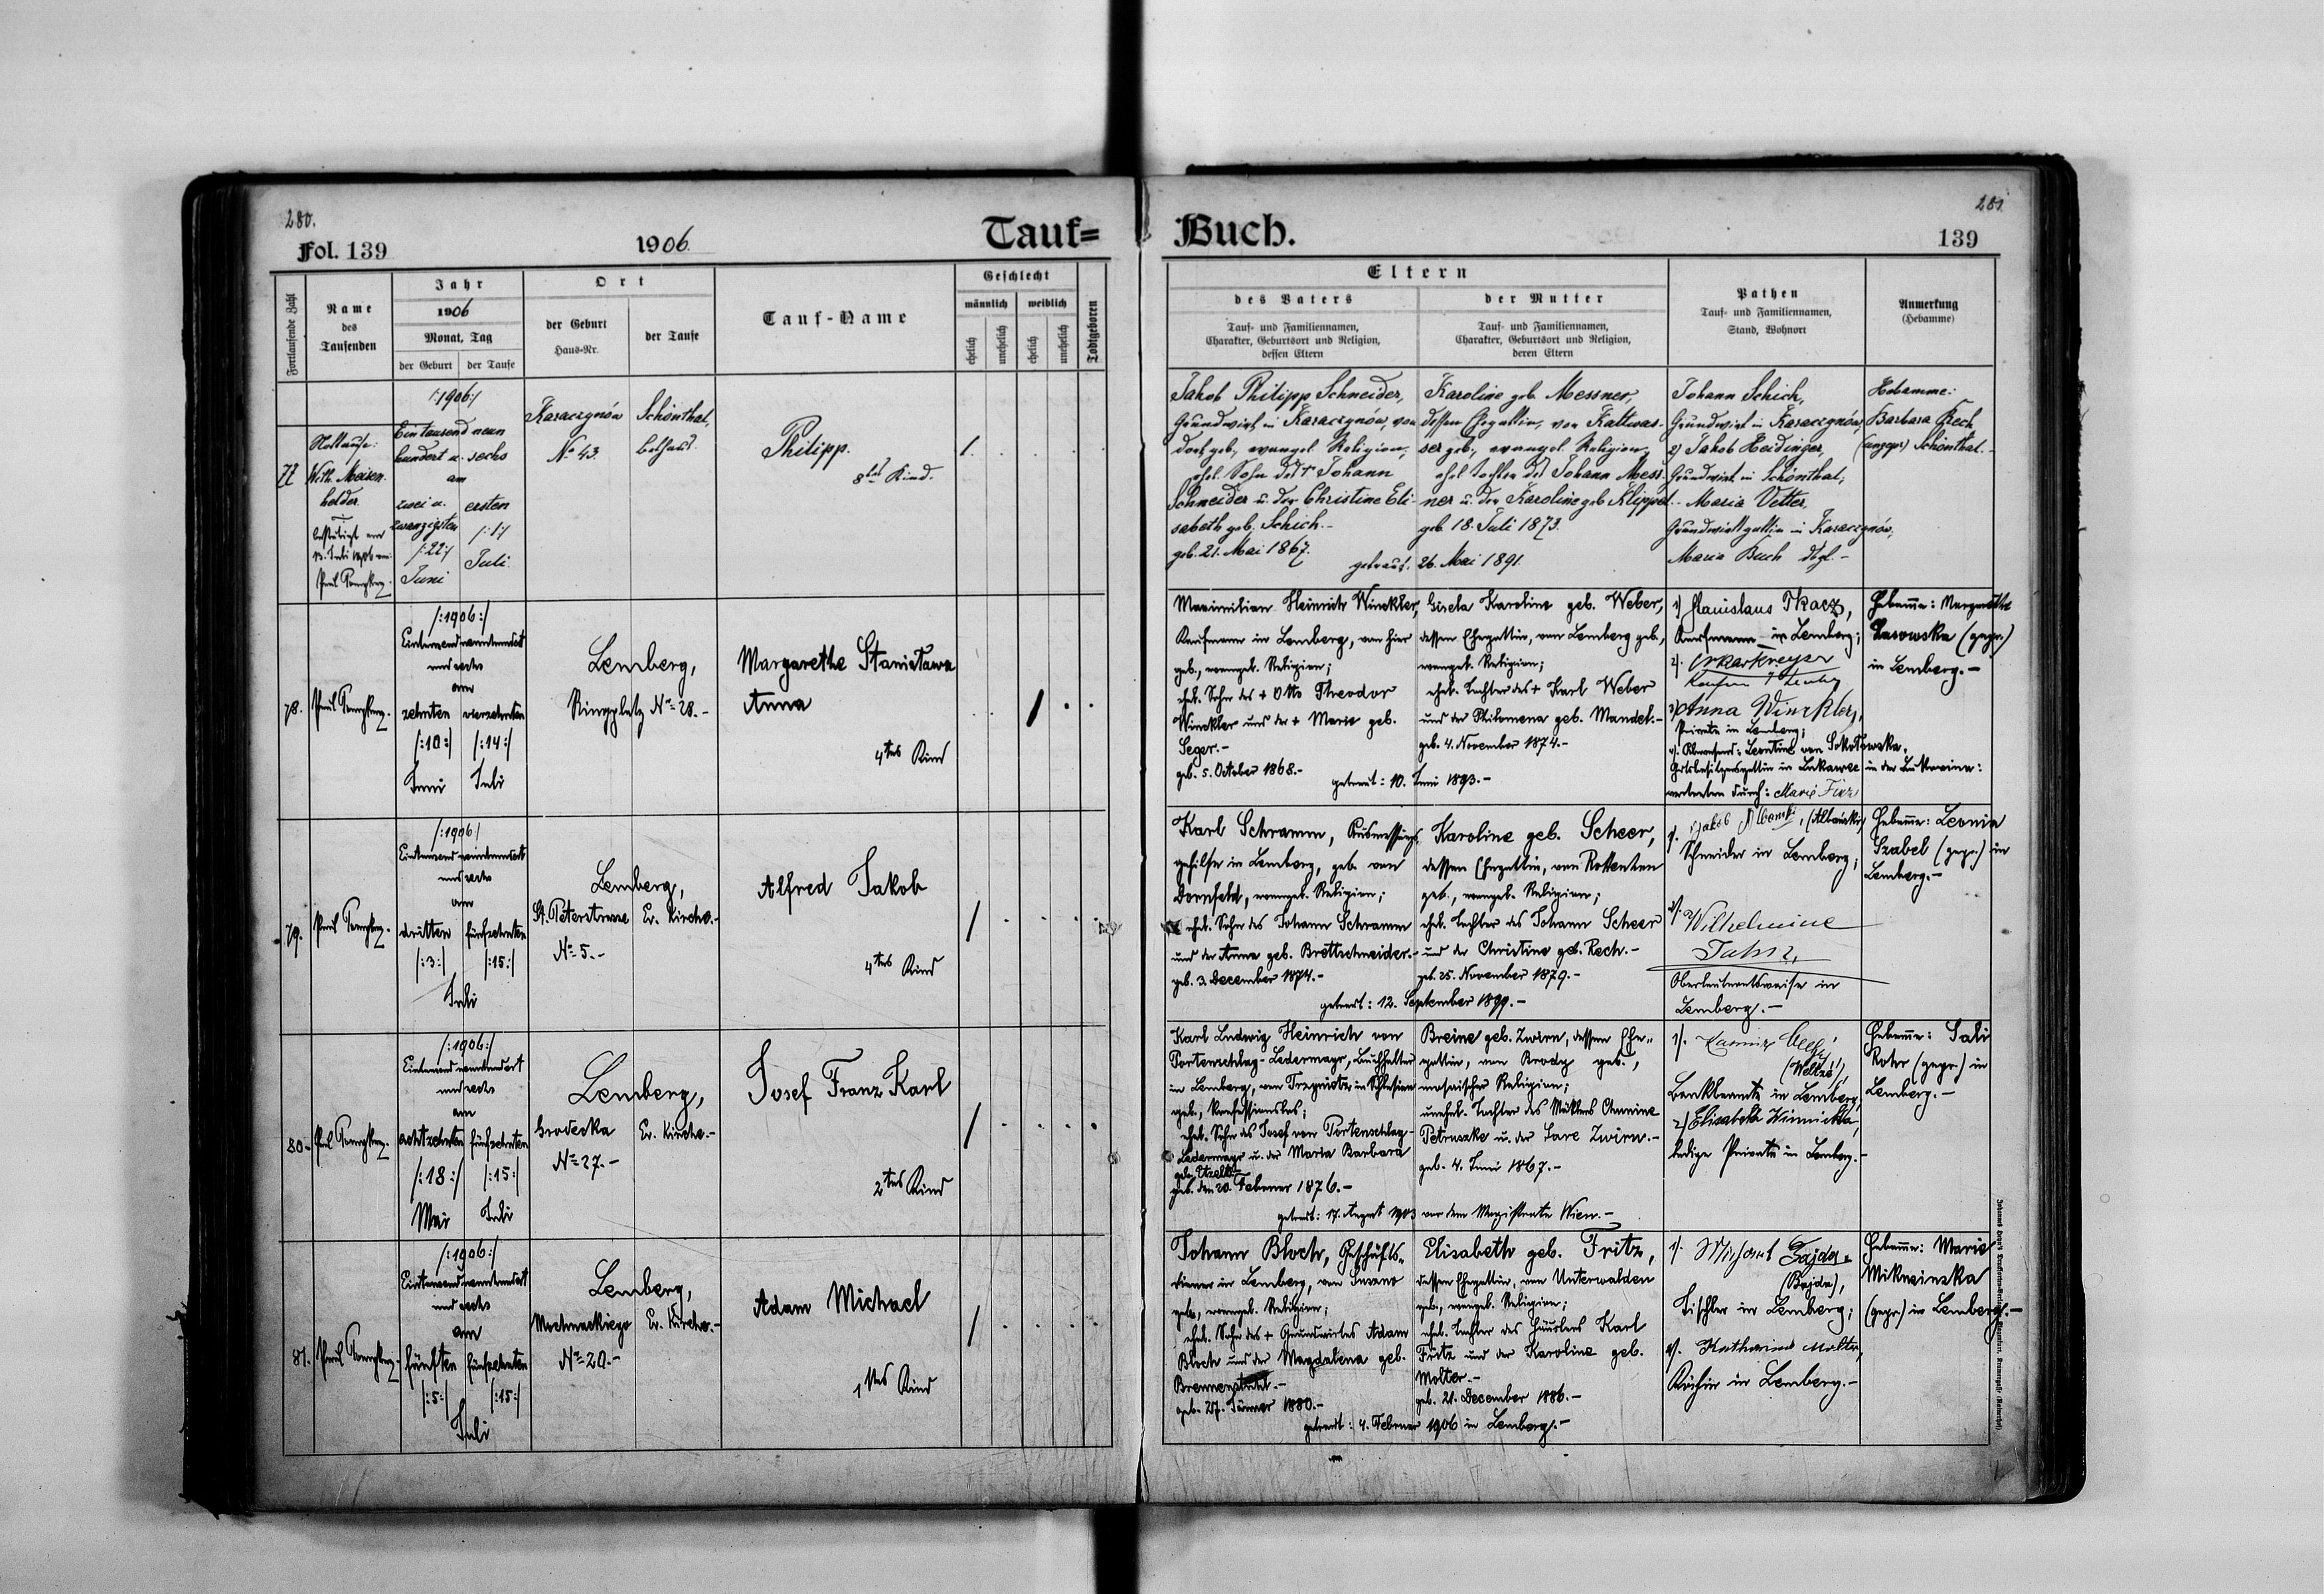 280.
Fol. 139
1906.
Tauf=
Fortlaufende Zahl
Name
des
Taufenden
Jahr
1906
Monat, Tag
der Geburt
der Taufe
Ort
der Geburt
Haus-Nr.
der Taufe
Tauf-Name
Geschlecht
männlich
weiblich
ehelich
unehelich
ehelich
unehelich
Todtgeboren
77
Nottaufe:
Wilh. Meisen-
helder.
/:1906:/
Ein tausend neun
hundert u. sechs
am
zwei u.
zwanzigsten
/:22:/
Juni
ersten
/:1:/
Juli.
Karaczynów
No 43.
Schönthal,
Bethaus.
Philipp.
8tes Kind.
78.
/:1906:/
Eintausendneunhundert
und sechs
am
zehnten
/:10:/
Juni
vierzehnten
/:14:/
Juli
Lemberg,
Ringplatz No 28.-
Margarethe Stanisława
Anna
4tes Kind
79.
/:1906:/
Eintausendneunhundert
und sechs
am
dritten
/:3:/
fünfzehnten
/:15:/
Juli
Lemberg,
St. Peterstrasse
No 5.-
Ev. Kirche.-
Alfred Jakob
4tes Kind
80.
/:1906:/
Eintausendneunhundert
und sechs
am
achtzehnten
/:18:/
Mai
fünfzehnten
/:15:/
Juli
Lemberg,
Grodecka
No 27.-
Ev. Kirche.-
Josef Franz Karl
2tes Kind
81.
/:1906:/
Eintausendneunhundert
und sechs
am
fünften
/:5:/
fünfzehnten
/:15:/
Juli
Lemberg,
Mochnackiego
No 29.-
Ev. Kirche.-
Adam Michael
1tes Kind
Buch.
281
139
Eltern
des Vaters
Tauf- und Familiennamen,
Charakter, Geburtsort und Religion,
dessen Eltern
der Mutter
Tauf- und Familiennamen,
Charakter, Geburtsort und Religion,
deren Eltern
Pathen
Tauf- und Familiennamen,
Stand, Wohnort
Anmerkung
(Hebamme)
Jakob Philipp Schneider,
Grundwirt in Karaczynów, von
dort geb., evangel. Religion,
ehel. Sohn des † Johann
Schneider u. der Christine Eli-
sabeth geb. Schich.-
geb. 21. Mai 1867.
Karoline geb. Messner,
dessen Ehegattin, von Kaltwas-
ser geb., evangel. Religion,
ehel. Tochter des Johann Mess-
ner u. der Karoline geb. Klippel.-
geb. 18. Juli 1873.
getraut: 26. Mai 1891.
Johann Schich,
Grundwirt in Karaczynów,
2) Jakob Heidinger,
Grundwirt in Schönthal,
Maria Vetter,
Grundwirtsgattin in Karaczynów,
Maria Buch dtgl.-
Hebamme:
Barbara Rech
(ungepr.) Schönthal.-
Maximilian Heinrich Winckler,
Kaufmann in Lemberg, von hier
geb., evangel. Religion;
ehel. Sohn des † Otto Theodor
Winckler und der † Marie geb.
Seger.-
geb. 5. October 1868.-
Gisela Karoline geb. Weber,
dessen Ehegattin, von Lemberg geb.,
evangel. Religion;
ehel. Tochter des † Karl Weber
und der Philomena geb. Mandel.-
geb. 4. November 1874.-
getraut: 10. Juni 1893.-
1). Stanislaus Tkacz,
Kaufmann in Lemberg;
2).
3) Anna Winckler,
Private in Lemberg;
4). Abwesend: Leontine von Sokołowska,
Gutsbesitzersgattin in Lukawce in der Bukowina:
vertreten durch: Marie
Hebamme: Margarethe
Lasowska (gepr.)
in Lemberg.-
Karl Schramm,
gehilfe in Lemberg, geb. von
Dornfeld, evangel. Religion;
ehel. Sohn des Johann Schramm
und der Anna geb. Brettschneider.-
geb. 3. December 1874.-
Karoline geb. Scheer,
dessen Ehegattin, von Rottenhan
geb., evangel. Religion;
ehel. Tochter des Johann Scheer
und der Christine geb. Rech.-
geb. 25. November 1879.-
getraut: 12. September 1899.-
1). Jakób Albański, (Albański)
Schneider in Lemberg;
2). Wilhelmine
Oberleutnantswaise in
Lemberg.-
Hebamme: Leonia
Szabel (gepr.) in
Lemberg.-
Karl Ludwig Heinrich von
Portenschlag-Ledermayr, Buchhalter
in Lemberg, von Trzynietz in Schlesien
geb., konfessionslos;
ehel. Sohn des Josef von Portenschlag-
Ledermayr u. der Maria Barbara
geb. Etzelt.-
geb. den 20. Februar 1876.-
Breine geb. Zwirn, dessen Ehe-
gattin, von Brody geb.,
mosaischer Religion;
unehel. Tochter des Mühlers Channine
Petruszke u. der Sare Zwirn.-
geb. 4. Juni 1867.-
getraut: 17. August 1903 vor dem Magistrate Wien.-
1).
Bankbeamte in Lemberg,
2) Elisabeth
ledige Private in Lemberg.-
Hebamme: Sali
Rohr (gepr.) in
Lemberg.-
Johann Bloch, Geschäfts-
diener in Lemberg, von
geb., evangel. Religion;
ehel. Sohn des † Grundwirtes Adam
Bloch und der Magdalena geb.
geb. 27. Jänner 1880.-
Elisabeth geb. Fritz,
dessen Ehegattin, von Unterwalden
geb., evangel. Religion;
ehel. Tochter des Häuslers Karl
Fritz und der Karoline geb.
Molter.-
geb. 21. December 1886.-
getraut: 4. Februar 1906 in Lemberg.-
1).
(Bajda),
Tischler in Lemberg;
2). Katharina Molter,
Köchin in Lemberg.-
Hebamme: Marie
Mikneinska
(gepr.) in Lemberg.-